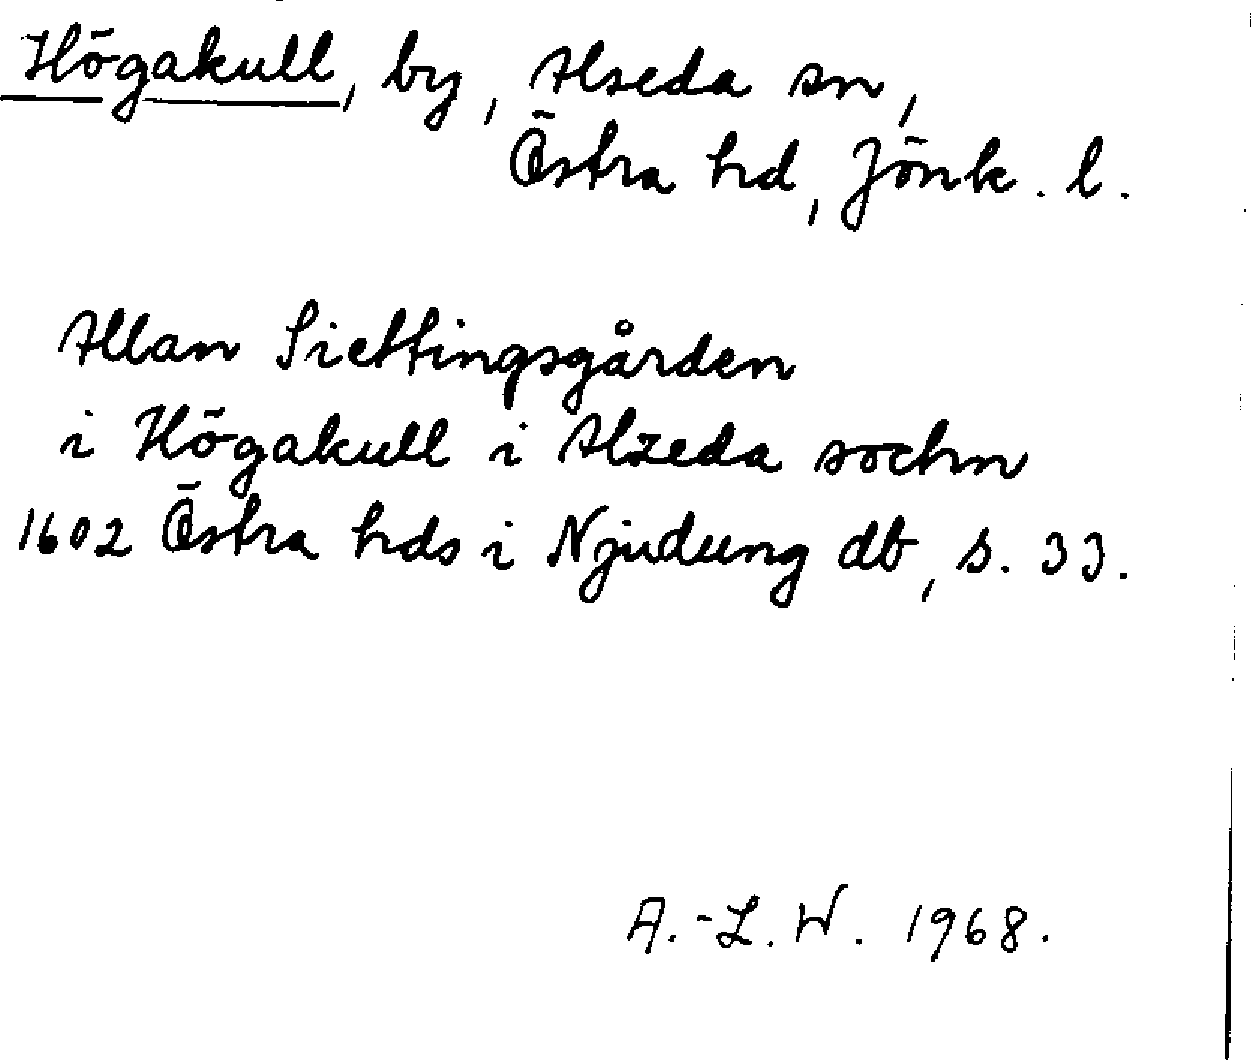 Högakull, by, Alseda sn,
Östra hd, Jönk. l.
Allan Siettingsgården
i Högakull i Alzeda sochn
1602 Östra hds i Njudung db, s. 33.
A.-L. W. 1968.